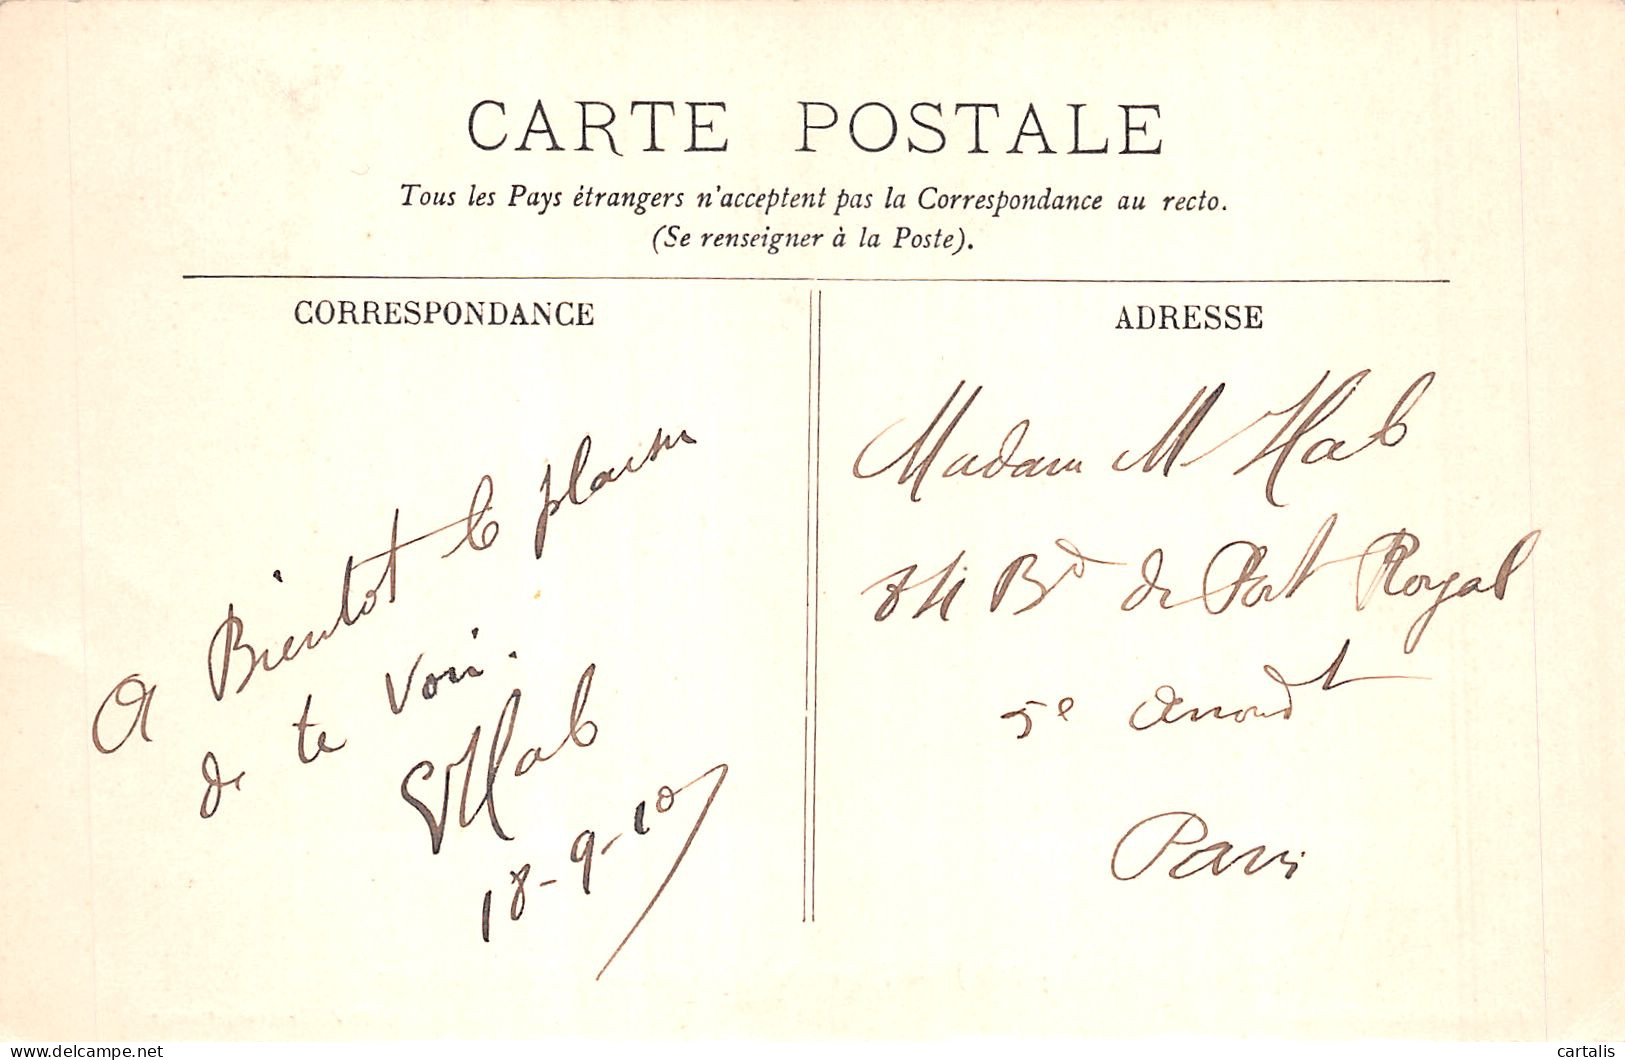 CARTE POSTALE
Tous les Pays étrangers n'acceptent pas la Correspondance au recto.
(Se renseigner à la Poste).
CORRESPONDANCE
A Bientot le plaisir
de te voir.
Hab
18-9-10
ADRESSE
Madam M Hab
84 Bd de Port Royal
5e Arrondt
Paris
delcampe.net
cartalis